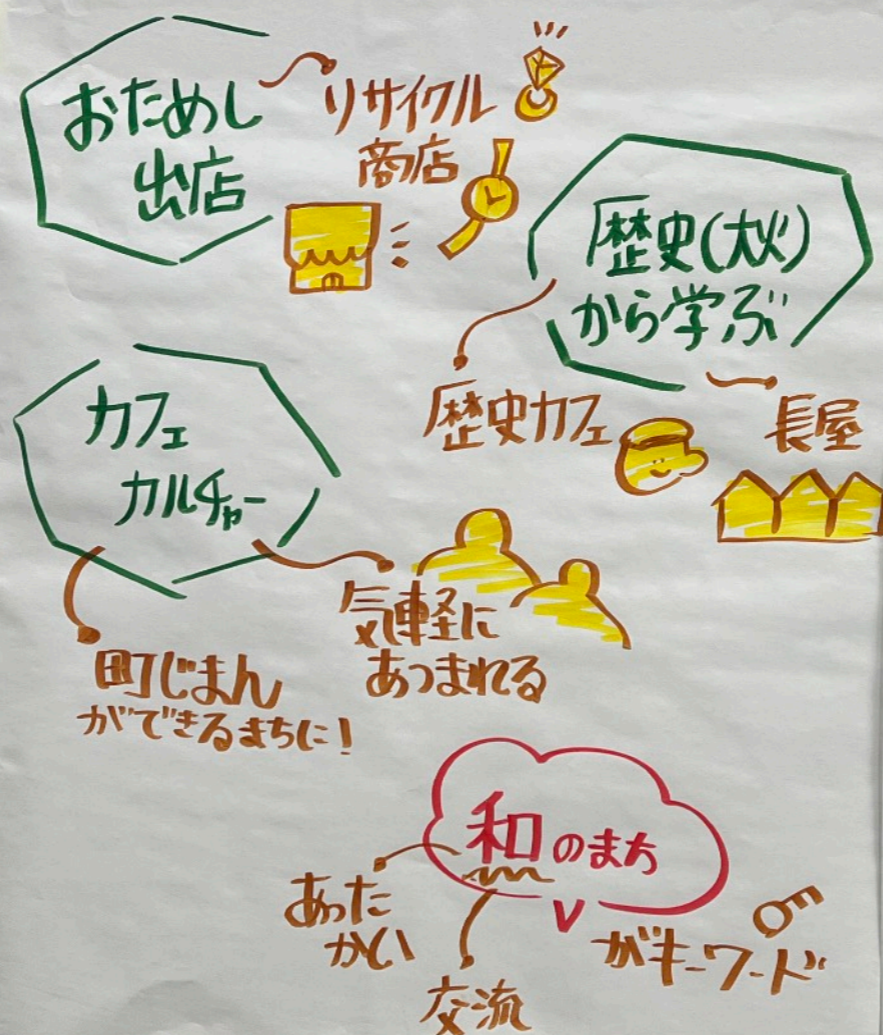 おためし
出店
リサイクル
商店
歴史(大火)
から学ぶ
歴史カフェ
長屋
カフェ
カルチャー
気軽に
あつまれる
町じまん
ができるまちに!
和のまち
あった
かい
交流
がキーワード